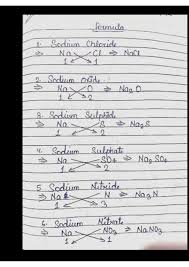 Formula
1. Sodium Chloride
⇒ Na Cl ⇒ NaCl
1 1
2. Sodium Oxide :
⇒ Na O ⇒ Na2O
1 2
3. Sodium Sulphide
⇒ Na S ⇒ Na2S
1 2
4. Sodium Sulphate
⇒ Na SO4 ⇒ Na2SO4
1 2
5 Sodium Nitride
⇒ Na N ⇒ Na3N
1 3
6. Sodium Nitrate
⇒ Na NO3 ⇒ NaNO3.
1 1